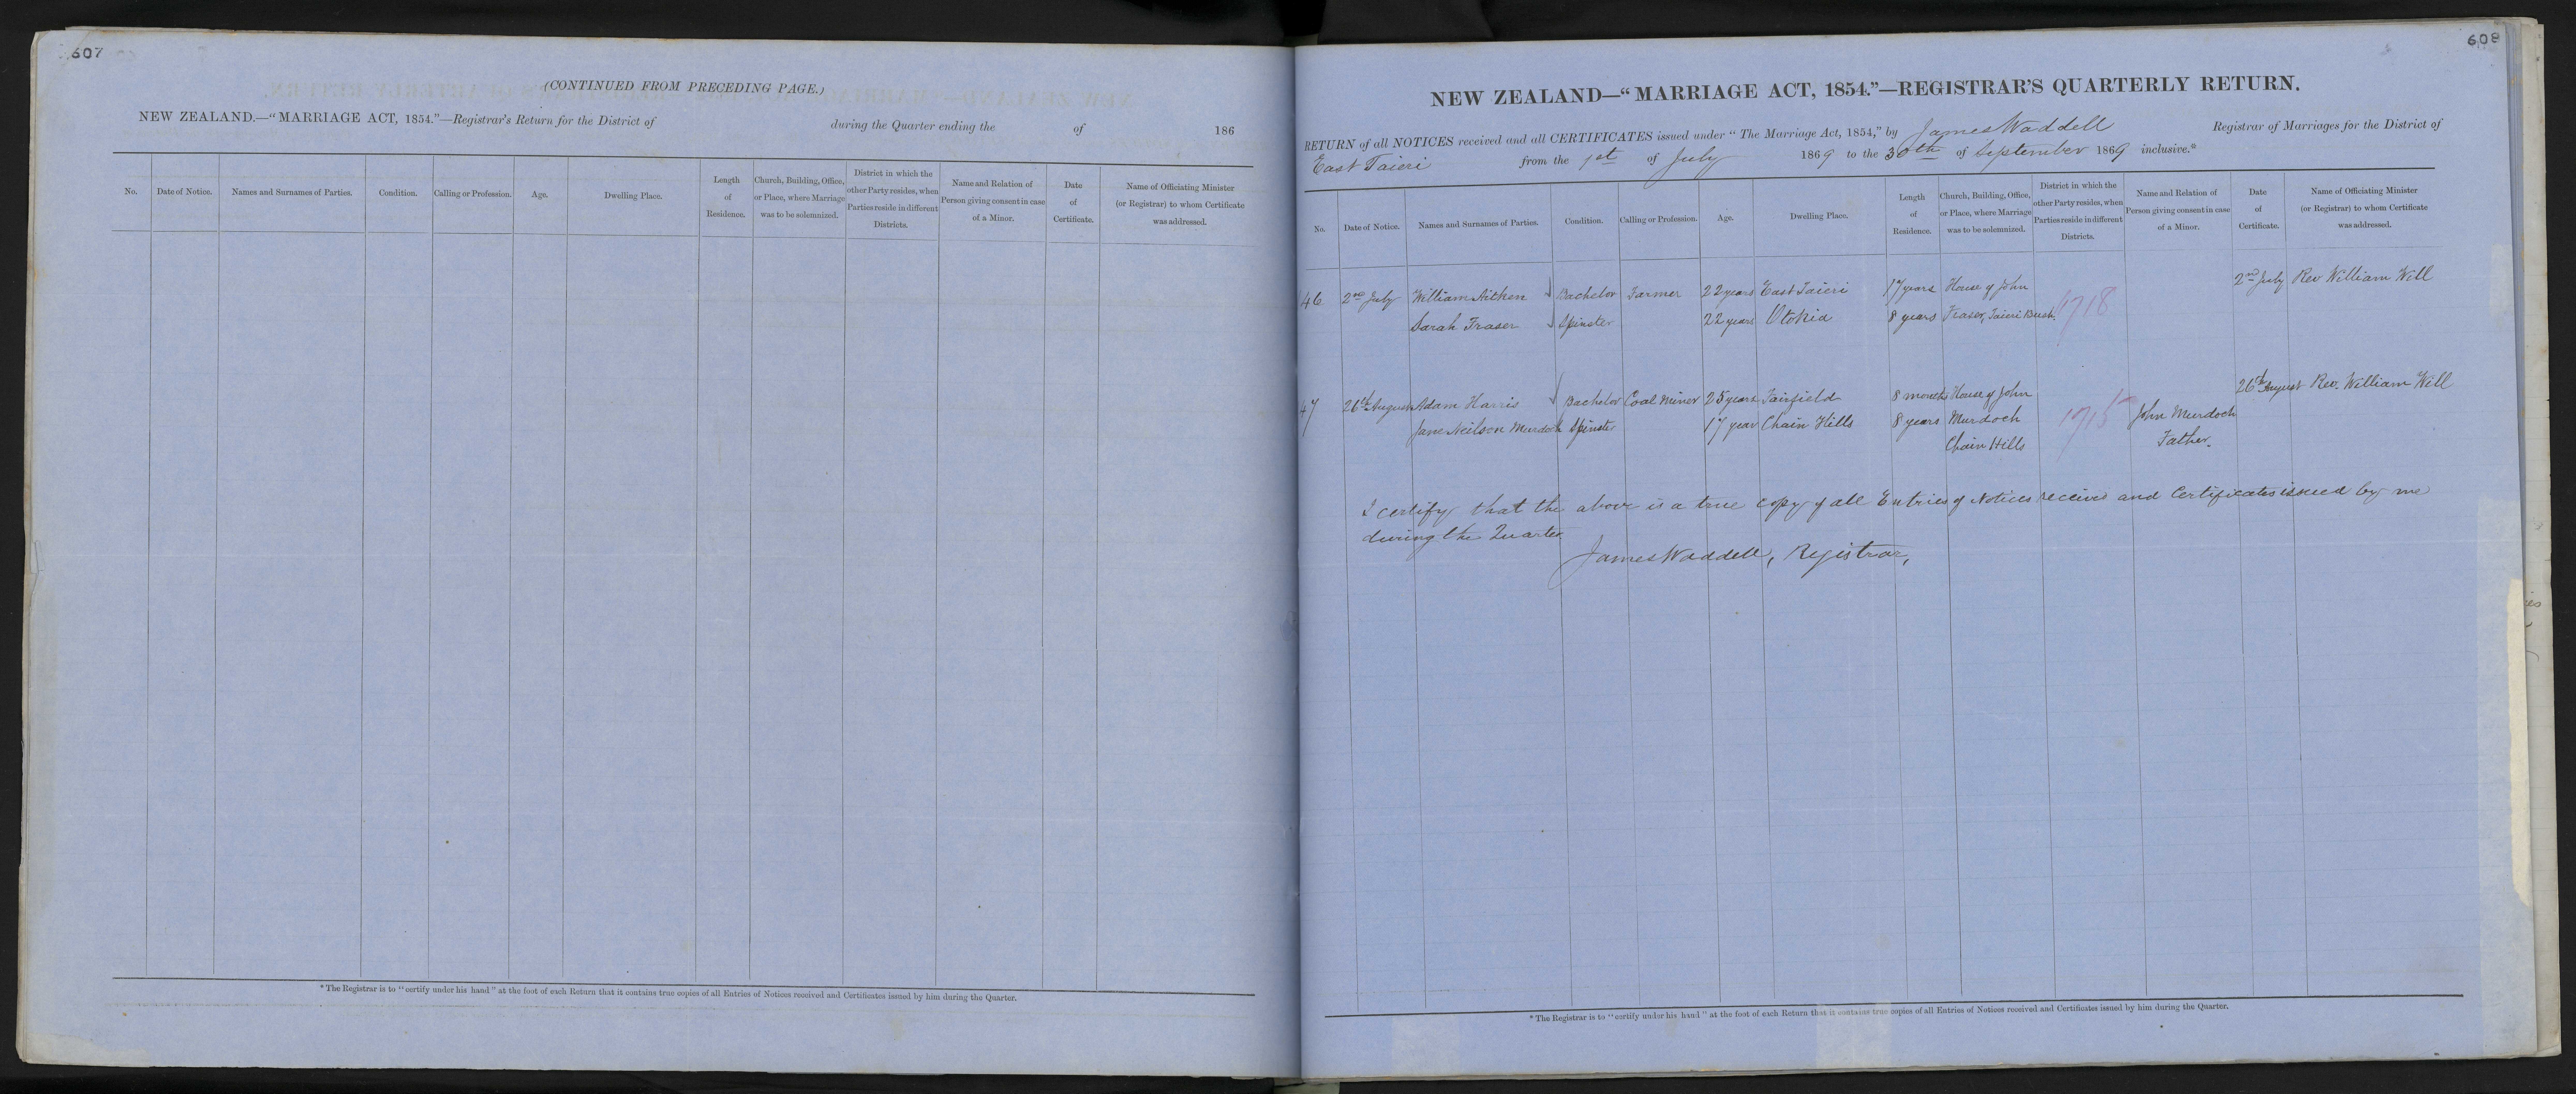 607
(CONTINUED FROM PRECEDING PAGE.)
NEW ZEALAND.—"MARRIAGE ACT, 1854."—Registrar's Return for the District of during the Quarter ending the of 186
No. Date of Notice. Names and Surnames of Parties. Condition. Calling or Profession. Age. Dwelling Place. Length of Residence. Church, Building, Office, or Place, where Marriage was to be solemnized. District in which the other Party resides, when Parties reside in different Districts. Name and Relation of Person giving consent in case of a Minor. Date of Certificate. Name of Officiating Minister (or Registrar) to whom Certificate was addressed.
* The Registrar is to "certify under his hand" at the foot of each Return that it contains true copies of all Entries of Notices received and Certificates issued by him during the Quarter.
608
NEW ZEALAND—"MARRIAGE ACT, 1854."—REGISTRAR'S QUARTERLY RETURN.
RETURN of all NOTICES received and all CERTIFICATES issued under "The Marriage Act, 1854," by James Waddell Registrar of Marriages for the District of
East Taieri from the 1st of July 1869 to the 30th of September 1869 inclusive.*
No. Date of Notice. Names and Surnames of Parties. Condition. Calling or Profession. Age. Dwelling Place. Length of Residence. Church, Building, Office, or Place, where Marriage was to be solemnized. District in which the other Party resides, when Parties reside in different Districts. Name and Relation of Person giving consent in case of a Minor. Date of Certificate. Name of Officiating Minister (or Registrar) to whom Certificate was addressed.
46 2nd July William Aitken Bachelor Farmer 22 years East Taieri 17 years House of John 2nd July Rev William Will
Sarah Fraser Spinster 22 years Otokia 8 years Fraser, Taieri Bush. 1718
47 26th August Adam Harris Bachelor Coal Miner 25 years Fairfield 8 months House of John 26th August Rev. William Will
Jane Neilson Murdoch Spinster 17 year Chain Hills 8 years Murdoch 1715 John Murdoch
Chain Hills Father.
I certify that the above is a true copy of all Entries of Notices received and Certificates issued by me
during the Quarter
James Waddell, Registrar,
* The Registrar is to "certify under his hand" at the foot of each Return that it contains true copies of all Entries of Notices received and Certificates issued by him during the Quarter.